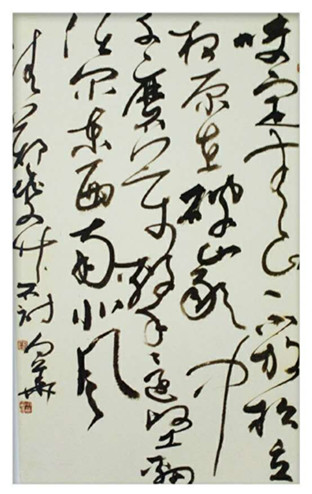 咬定青山不放松立
根原在破岩中
千磨万击还坚劲
任尔东西南北风
清郑燮竹石诗